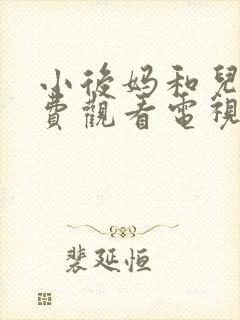 小後妈和兒
費觀看電視
裴延恒